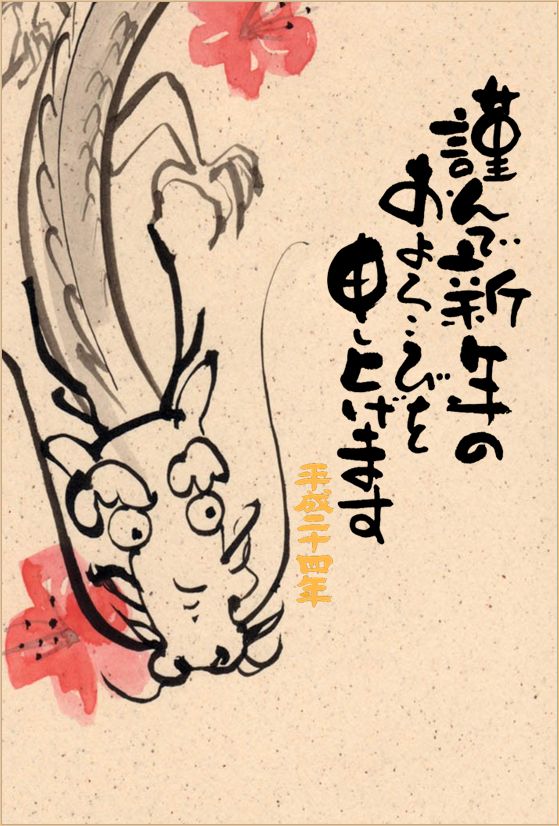 謹んで新年の
およろこびを
申し上げます
平成二十四年